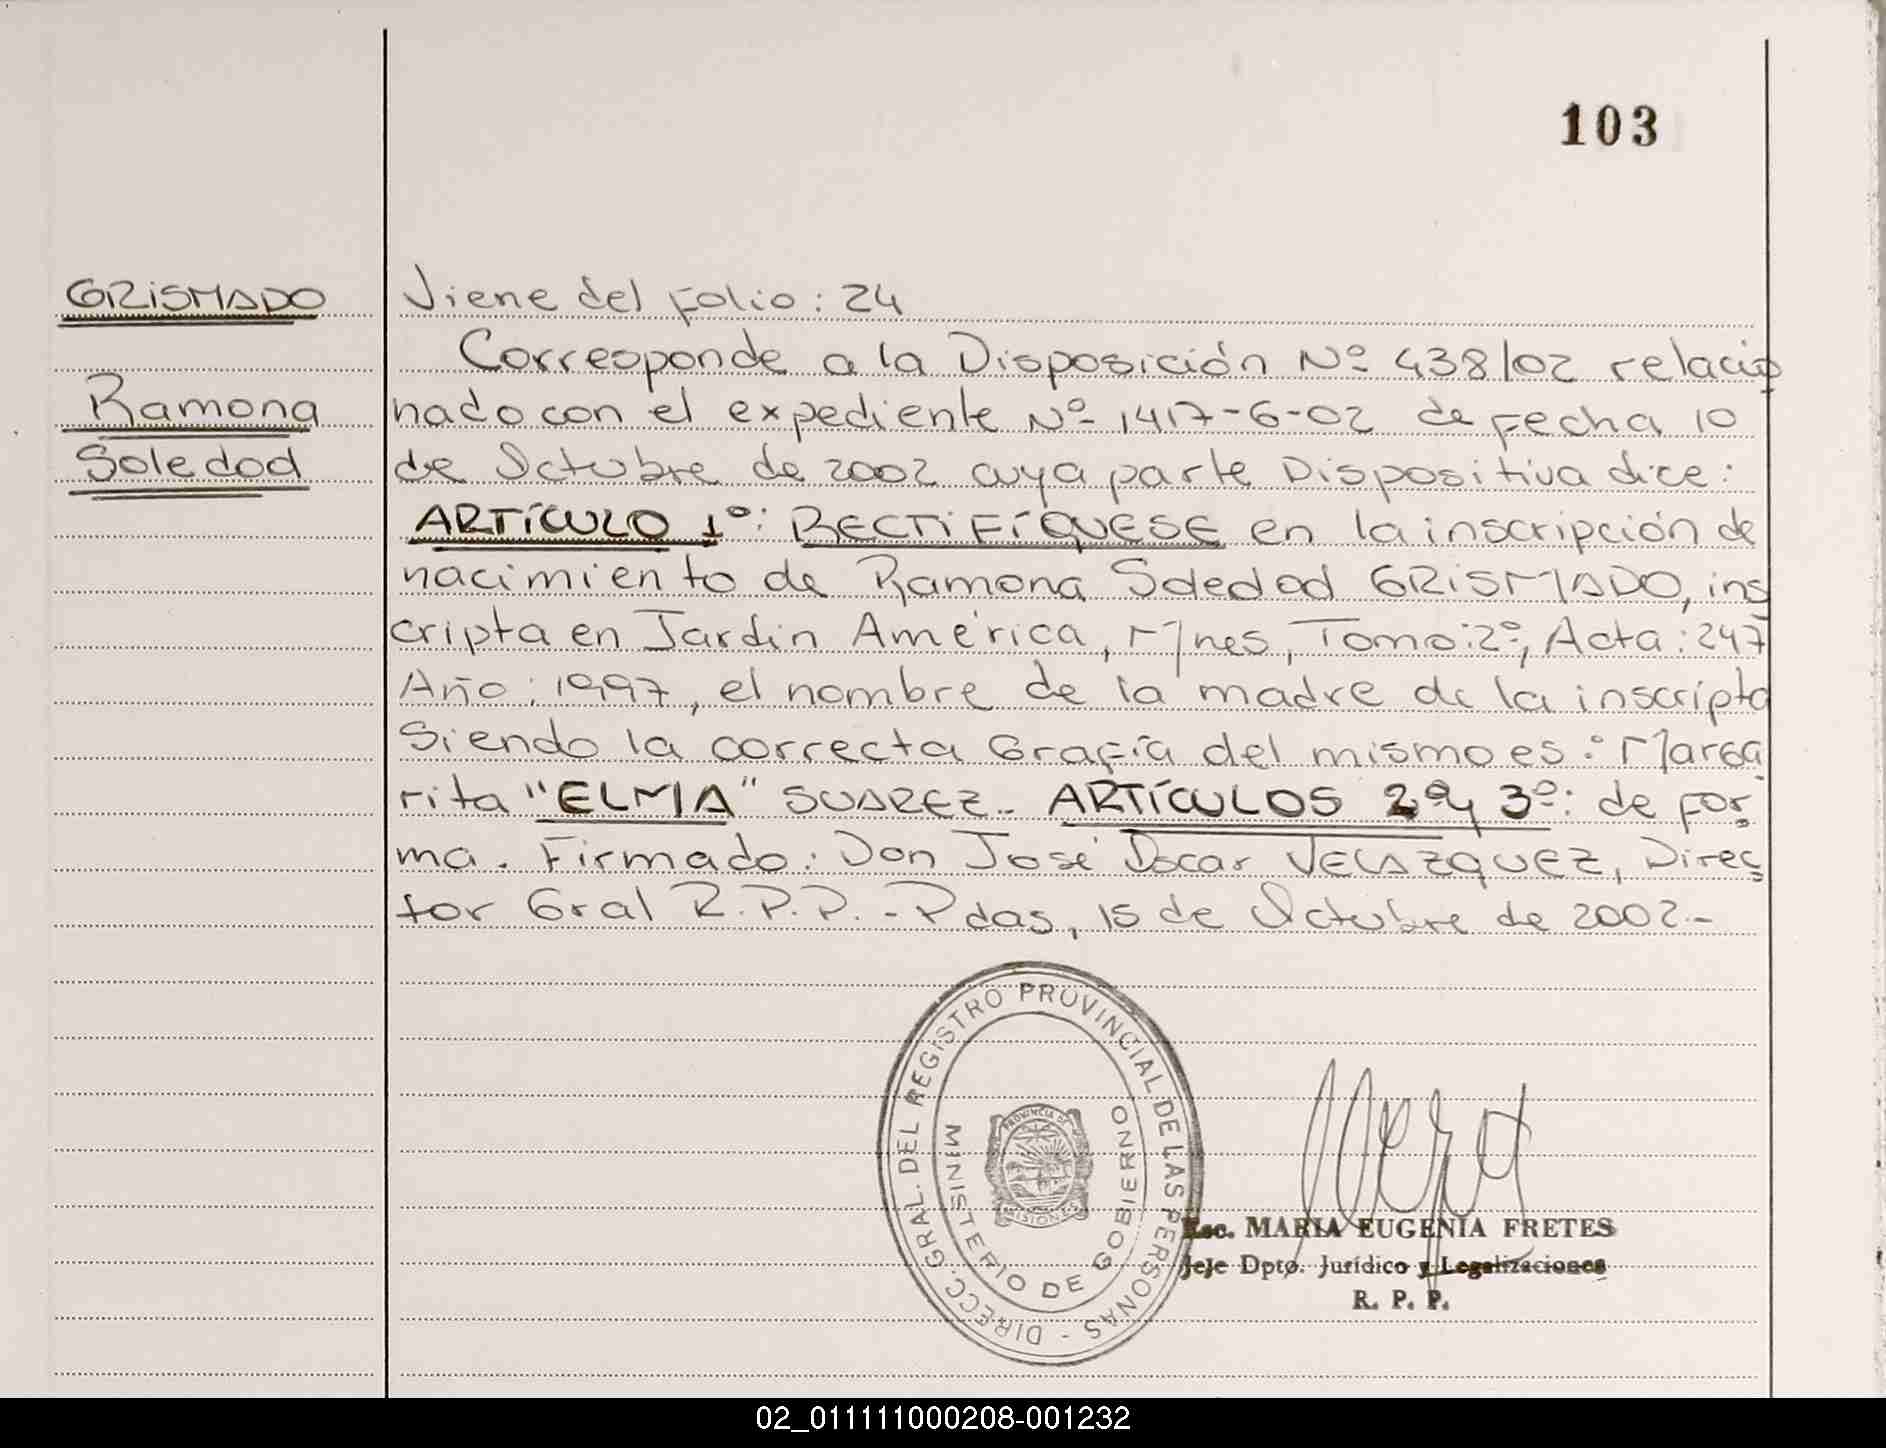 103
GRISMADO
Ramona
Soledad
Viene del folio: 24
Corresponde a la Disposición Nº 438/02 relacio
nado con el expediente Nº 1417-6-02 de fecha 10
de Octubre de 2002 cuya parte Dispositiva dice:
ARTÍCULO 1º: RECTIFÍQUESE en la inscripción de
nacimiento de Ramona Soledad GRISMADO, ins
cripta en Jardín América, Mnes, Tomo: 2º, Acta: 247
Año: 1997, el nombre de la madre de la inscripta
Siendo la correcta Grafía del mismo es: Marga
rita "ELMA" SUAREZ.- ARTÍCULOS 2º y 3º: de for
ma. Firmado: Don José Oscar VELAZQUEZ, Direc
tor Gral R.P.P.- Pdas, 15 de Octubre de 2002.-
DIRECC. GRAL. DEL REGISTRO PROVINCIAL DE LAS PERSONAS -
MINISTERIO DE GOBIERNO
PROVINCIA DE
MISIONES
Esc. MARIA EUGENIA FRETES
Jefe Dpto. Jurídico y Legalizaciones
R. P. P.
02_011111000208-001232